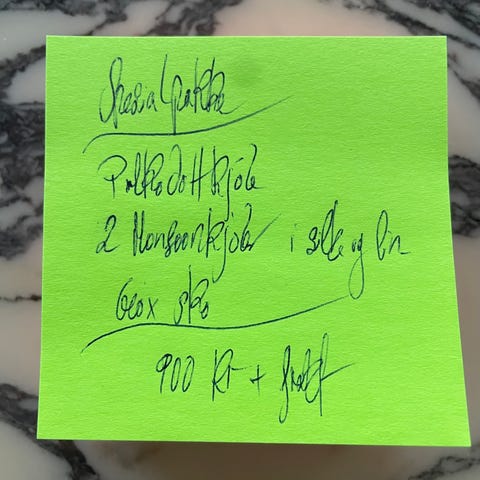 Spesialpakke
Polkadott kjole
2 Monsoon kjoler i silke og lin
Geox sko
900 kr + frakt